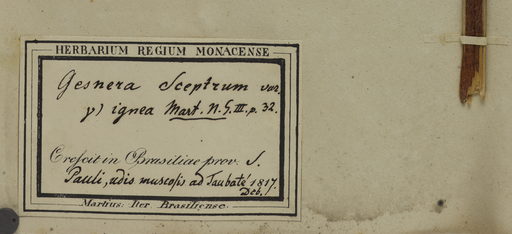 HERBARIUM REGIUM MONACENSE
Gesnera Sceptrum var.
γ) ignea Mart. N. G. III. p. 32.
Crescit in Brasiliae prov. S.
Pauli, udis muscosis ad Taubaté 1817.
Deb.
Martius: Iter Brasiliense.